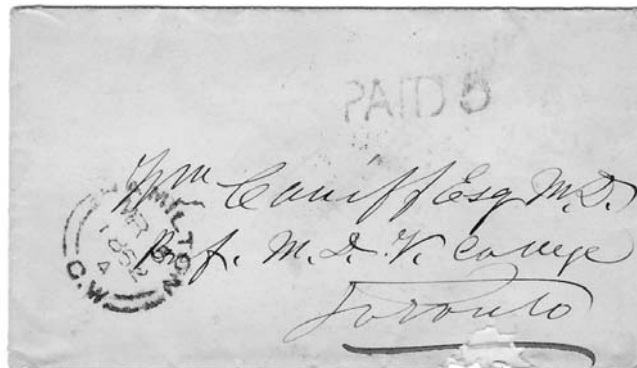 PAID 5
Wm Canniff Esq M.D.
Prof. M. D. V. College
Toronto
HAMILTON
MR
1862
C.W.